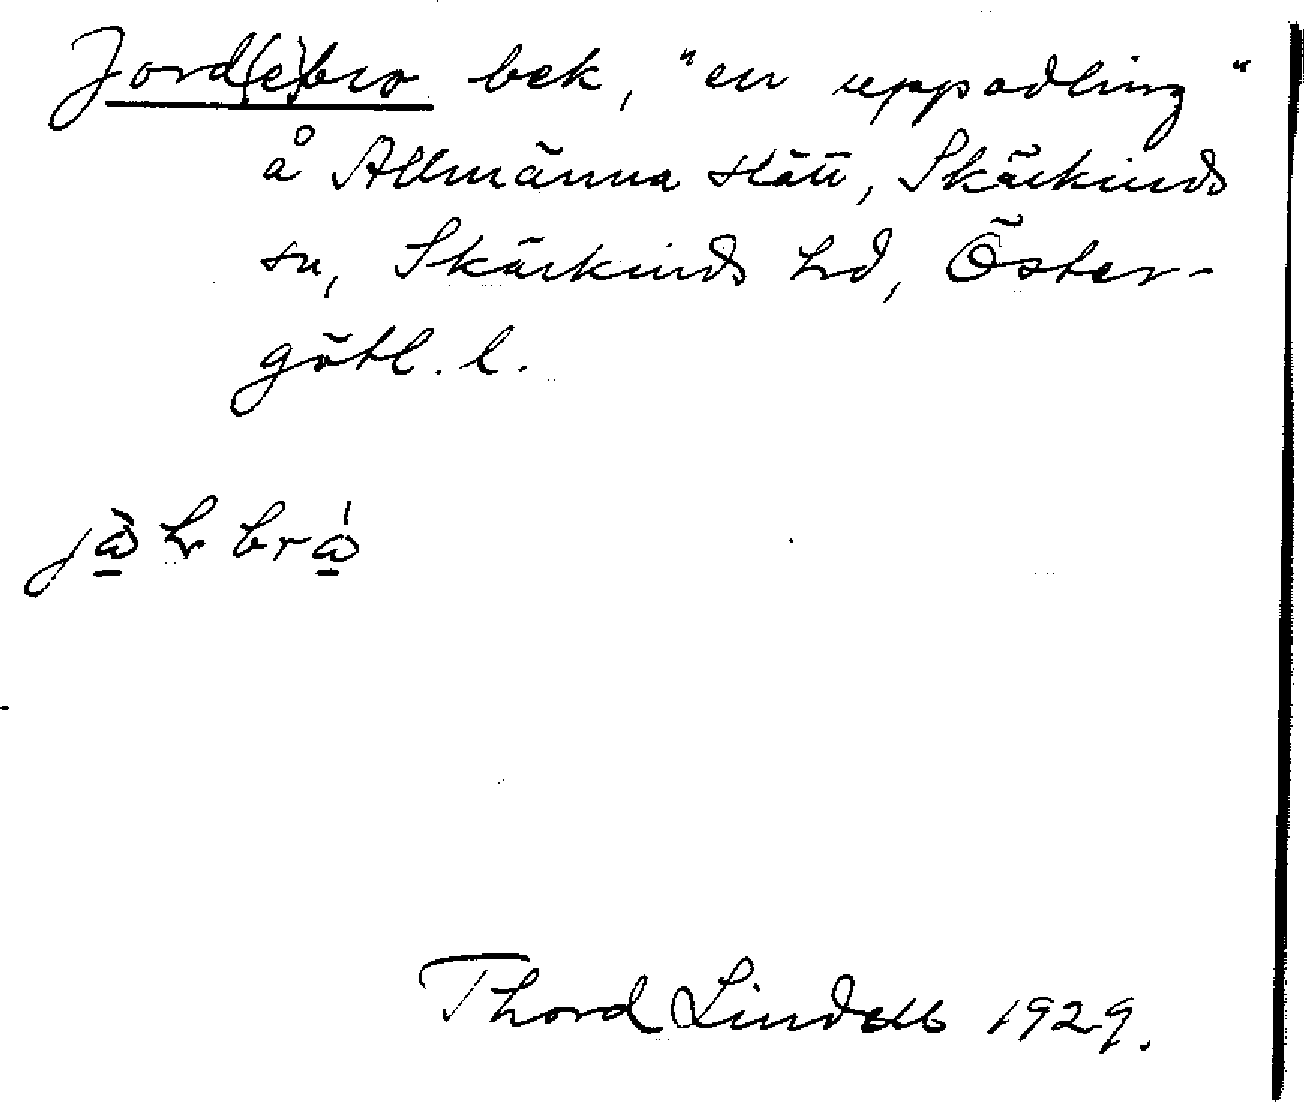 Jord(e)bro bek, "en uppodling"
å Allmänna slätt, Skärkinds
sn, Skärkinds hd, Öster-
götl. l.
Thord Lindell 1929.